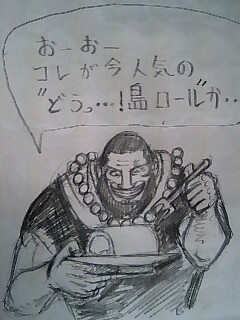 おーおー
コレが今人気の
"どうっ…!島ロール"か…